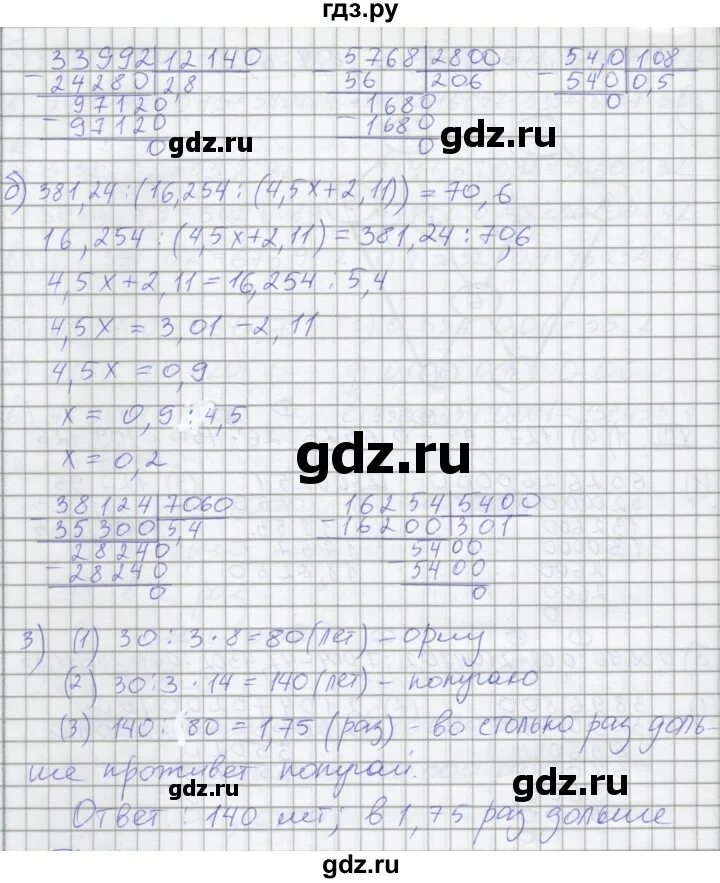 гдз.ру
33992 12140 5768 2800 54,0 108
- 24280 2,8 - 56 206 - 540 0,5
97120 1680 0
- 97120 - 1680
0 0
gdz.ru gdz.ru
б) 381,24 : (16,254 : (4,5x+2,11)) = 70,6
16,254 : (4,5x+2,11) = 381,24 : 70,6
4,5x+2,11 = 16,254 : 5,4
4,5x = 3,01 - 2,11
4,5x = 0,9
x = 0,9 : 4,5
gdz.ru
x = 0,2
38124 7060 16254 5400
- 35300 5,4 - 16200 301
28240 5400
- 28240 - 5400
0 0
3) (1) 30 : 3 · 8 = 80 (лет) - орлу
(2) 30 : 3 · 14 = 140 (лет) - попугаю
(3) 140 : 80 = 1,75 (раз) - во столько раз доль-
ше проживет попугай.
gdz.ru gdz.ru
Ответ : 140 лет; в 1,75 раз дольше
gdz.ru